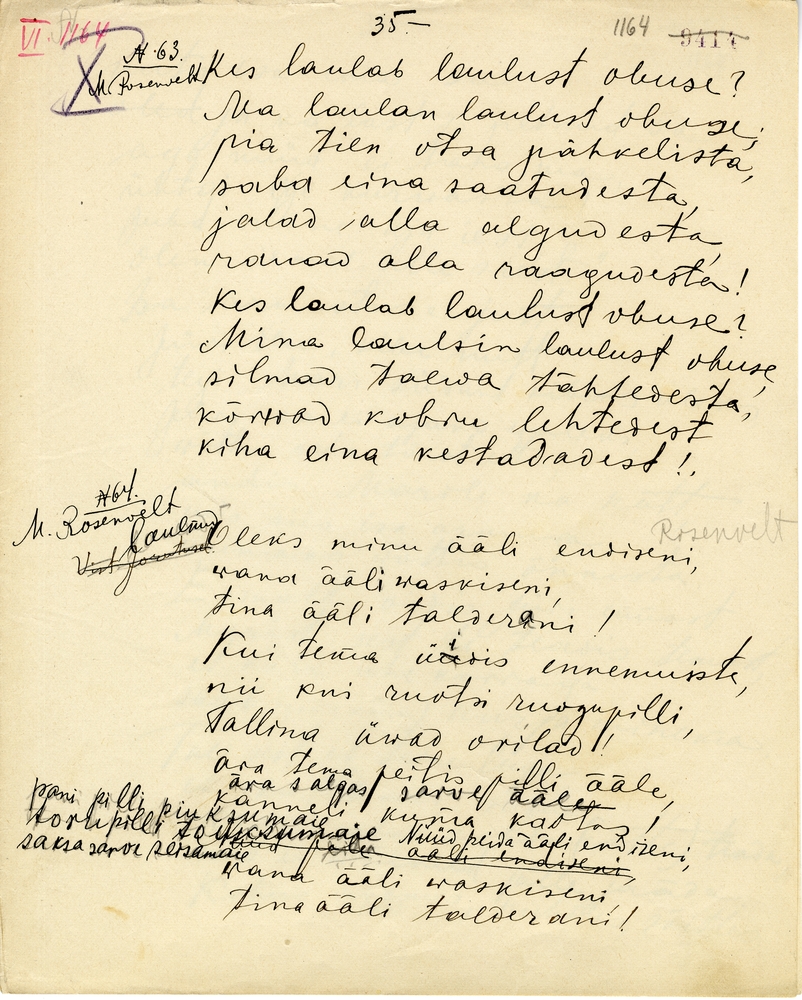 35-
VI 1164
1164
9414
N 63.
M. Rosenvelt
Kes laulab laulust obuse?
Ma laulan laulust obuse;
pia tien otsa pähkelista,
saba eina saatudesta,
jalad alla algudesta,
rauad alla raagudesta!
Kes laulab laulust obuse?
Mina laulsin laulust obuse,
silmad taewa tähtedesta,
kõrwad kobru lehtedest
kiha eina kestadadest!
N 64.
M. Rosenvelt
laulnud
Rosenvelt
Oleks minu ääli endiseni,
wana ääli waskiseni,
tina ääli talderani!
Kui tema üidis ennemuiste,
nii kui ruotsi ruogupilli,
Tallina üwad orilad!
ära tema peitis pilli ääle,
ära salgas sarve ääle,
kanneli kuma kaotas!
pani pilli piuksumaie
torupilli touksumaie
Nüüd peida ääli endiseni,
saksa sarve seisamaie
peida ääli endiseni,
wana ääli waskiseni,
tina ääli talderani!